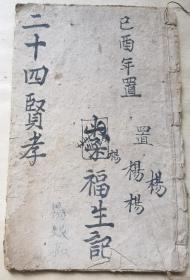 己酉年置
置
楊
楊
楊
福生記
二十四賢孝